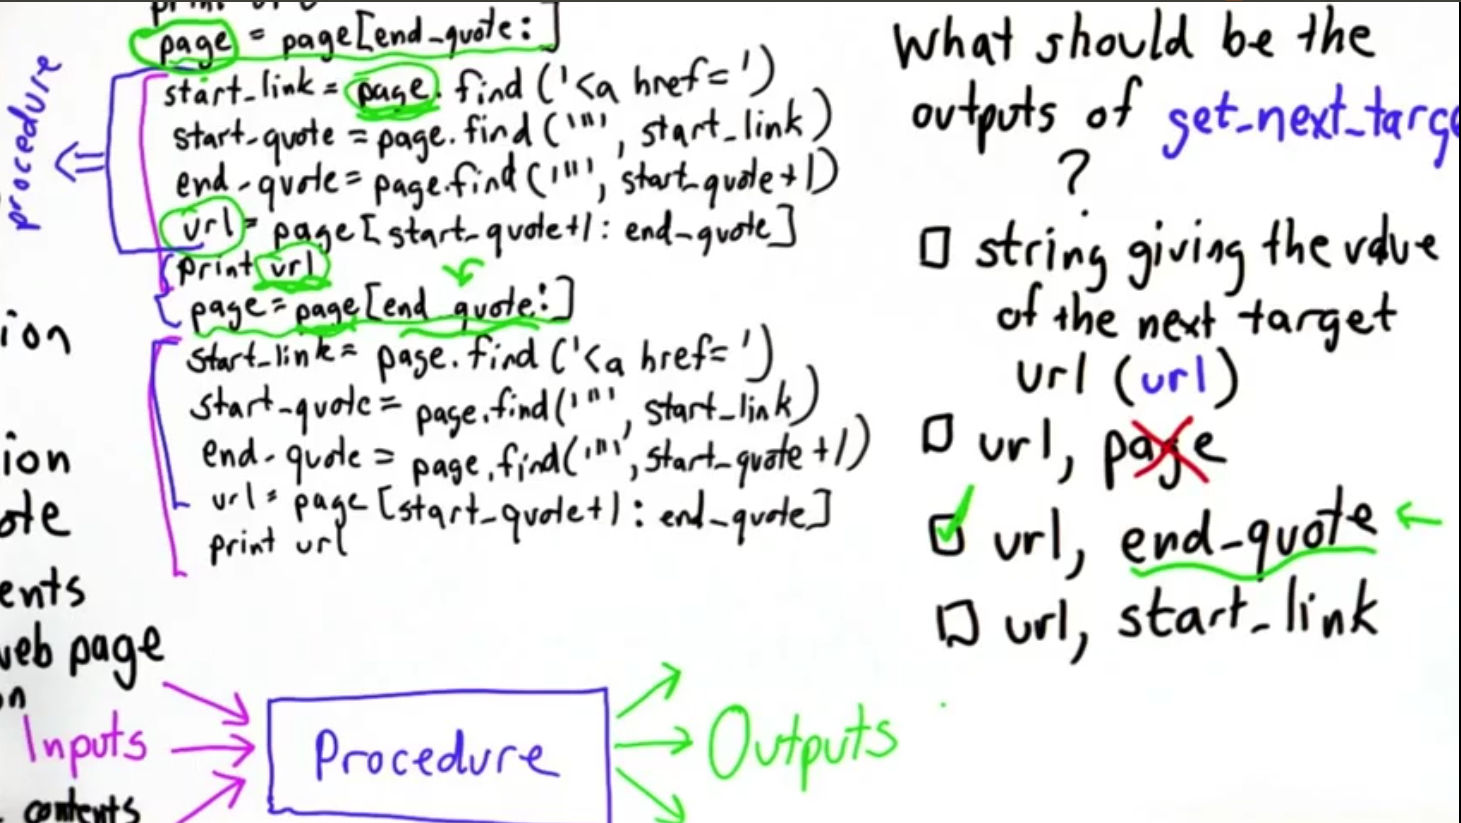 page = page[end_quote:]
procedure
start_link = page.find('<a href=')
start_quote = page.find('"', start_link)
end_quote = page.find('"', start_quote+1)
url = page[start_quote+1: end_quote]
print url
page = page[end_quote:]
start_link = page.find('<a href=')
start_quote = page.find('"', start_link)
end_quote = page.find('"', start_quote+1)
url = page[start_quote+1: end_quote]
print url
ion
ion
ote
ents
web page
on
Inputs
contents
Procedure
Outputs
What should be the
outputs of get_next_targe
?
string giving the value
of the next target
url (url)
url, page
url, end_quote
url, start_link